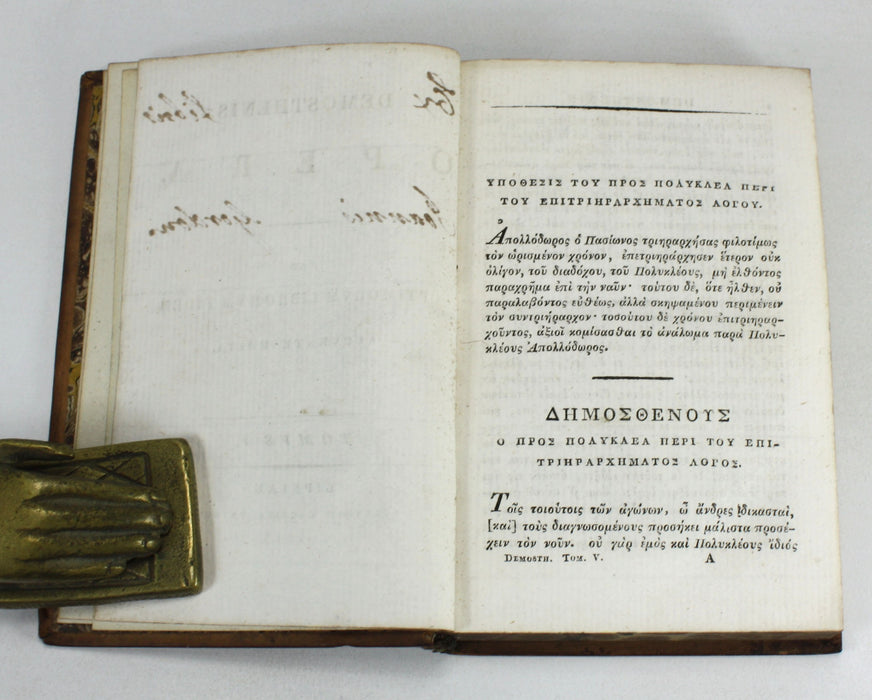 Ex
Libris
Joannis Gordon.
ΥΠΟΘΕΣΙΣ ΤΟΥ ΠΡΟΣ ΠΟΛΥΚΛΕΑ ΠΕΡΙ
ΤΟΥ ΕΠΙΤΡΙΗΡΑΡΧΗΜΑΤΟΣ ΛΟΓΟΥ.
Ἀπολλόδωρος ὁ Πασίωνος τριηραρχήσας φιλοτίμως
τὸν ὡρισμένον χρόνον, ἐπετριηράρχησεν ἕτερον οὐκ
ὀλίγον, τοῦ διαδόχου, τοῦ Πολυκλέους, μὴ ἐλθόντος
παραχρῆμα ἐπὶ τὴν ναῦν· τούτου δὲ, ὅτε ἦλθεν, οὐ
παραλαβόντος εὐθέως, ἀλλὰ σκηψαμένου περιμένειν
τὸν συντριήραρχον· τοσούτου δὲ χρόνου ἐπιτριηραρ-
χοῦντος, ἀξιοῖ κομίσασθαι τὸ ἀνάλωμα παρὰ Πολυ-
κλέους Ἀπολλόδωρος.
ΔΗΜΟΣΘΕΝΟΥΣ
Ο ΠΡΟΣ ΠΟΛΥΚΛΕΑ ΠΕΡΙ ΤΟΥ ΕΠΙ-
ΤΡΙΗΡΑΡΧΗΜΑΤΟΣ ΛΟΓΟΣ.
Τοῖς τοιούτοις τῶν ἀγώνων, ὦ ἄνδρες δικασταὶ,
[καὶ] τοὺς διαγνωσομένους προσήκει μάλιστα προσέ-
χειν τὸν νοῦν. οὐ γὰρ ἐμὸς καὶ Πολυκλέους ἴδιός
DEMOSTH. TOM. V. A